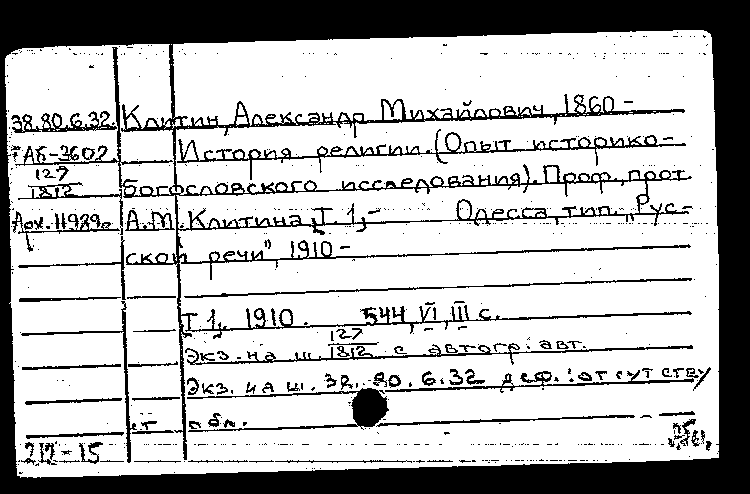 38.80.6.32. Клитин, Александр Михайлович, 1860 -
ГАБ-3607. История религии. (Опыт историко-
127
1812 богословского исследования). Проф., прот.
Арх. 11989а А.М. Клитина, Т 1,- Одесса, тип. „Рус-
ской речи", 1910 -
Т 1,. 1910. 544, VI, III с.
Экз. на ш. 127/1812 с автогр. авт.
Экз. на ш. 38.80.6.32 деф.: отсутству
ет обл.
212-15